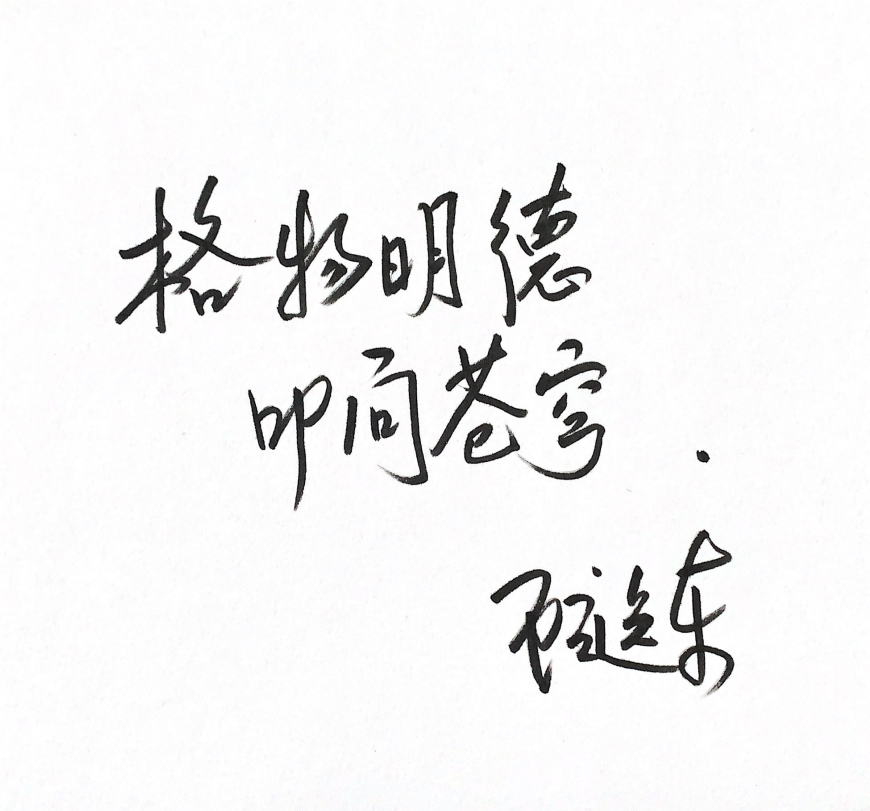 格物明德
叩问苍穹.